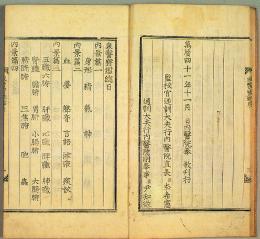 萬曆四十一年十一月 日內醫院奉 教刊行
監校官通訓大夫行內醫院直長 李希憲
通訓大夫行內醫院副奉事 尹知微
東醫寶鑑總目
內景篇一
身形 精 氣 神
內景篇二
血 夢 聲音 言語 津液 痰飮
內景篇三
五臟六腑 肝臟 心臟 脾臟 肺臟
腎臟 膽腑 胃腑 小腸腑 大腸腑
膀胱腑 三焦腑 胞 蟲
內景篇四